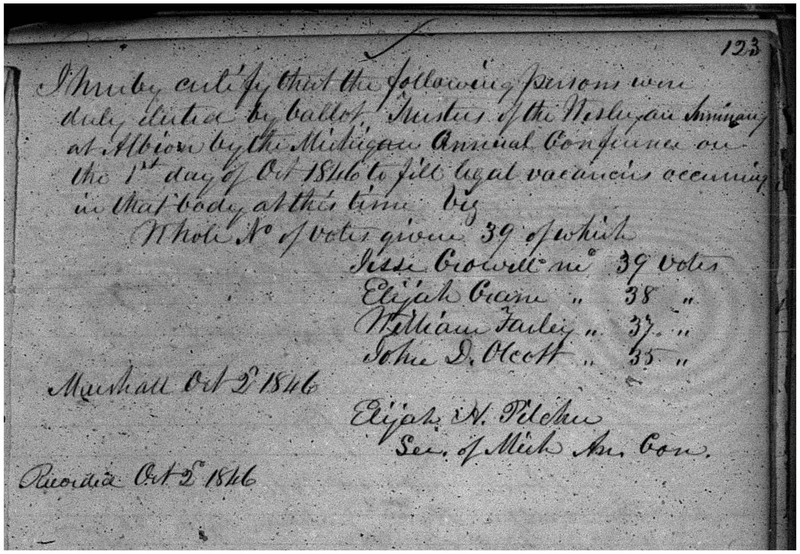 123
I hereby certify that the following persons were
duly elected by ballot, Trustees of the Wesleyan Seminary
at Albion by the Michigan Annual Conference on
the 1st day of Oct 1846 to fill legal vacancies occurring
in that body at this time viz
Whole No of votes given 39 of which
Jesse Crowell recd 39 votes
Elijah Crane " 38 "
William Farley " 37 "
John D. Olcott " 35 "
Marshall Oct 2d 1846
Elijah H. Pilcher
Sec. of Mich An. Con.
Recorded Oct 2d 1846